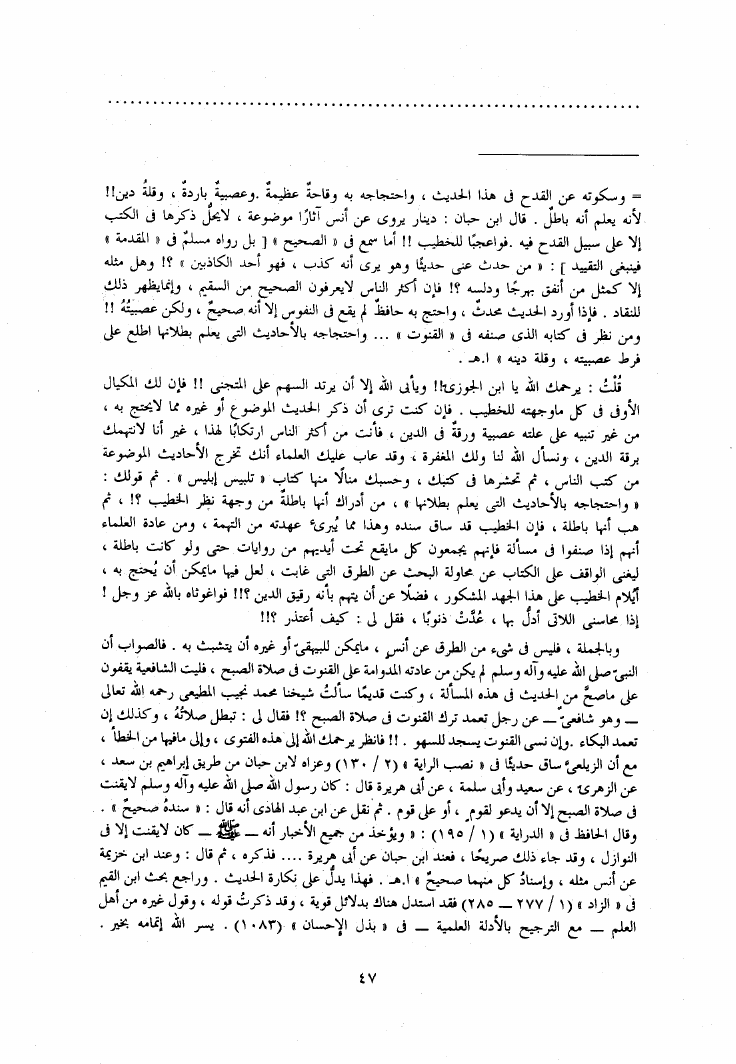 = وسكوته عن القدح فى هذا الحديث ، واحتجاجه به وقاحةٌ عظيمةٌ .وعصبيةٌ باردةٌ ، وقلةُ دين!!
لأنه يعلم أنه باطلٌ . قال ابن حبان : دينار يروى عن أنس آثارًا موضوعة ، لايحلُّ ذكرها فى الكتب
إلا على سبيل القدح فيه .فواعجبًا للخطيب !! أما سمع فى « الصحيح » [ بل رواه مسلمٌ فى « المقدمة »
فينبغى التقييد ] : « من حدث عنى حديثًا وهو يرى أنه كذب ، فهو أحد الكاذبين » ؟! وهل مثله
إلا كمثل من أنفق بهرجًا ودلسه ؟! فإن أكثر الناس لايعرفون الصحيح من السقيم ، وإنمايظهر ذلك
للنقاد . فإذا أورد الحديث محدثٌ ، واحتج به حافظٌ لم يقع فى النفوس إلا أنه صحيحٌ ، ولكن عصبيتُهُ !!
ومن نظر فى كتابه الذى صنفه فى « القنوت » ... واحتجاجه بالأحاديث التى يعلم بطلانها اطلع على
فرط عصبيته ، وقلة دينه » ا.هـ .
قُلْتُ : يرحمك الله يا ابن الجوزى!! ويأبى الله إلا أن يرتد السهم على المتجنى !! فإن لك المكيال
الأوفى فى كل ماوجهته للخطيب . فإن كنت ترى أن ذكر الحديث الموضوع أو غيره مما لايحتج به ،
من غير تنبيه على علته عصبية ورقةٌ فى الدين ، فأنت من أكثر الناس ارتكابًا لهذا ، غير أنا لانتهمك
برقة الدين ، ونسأل الله لنا ولك المغفرة ، وقد عاب عليك العلماء أنك تخرج الأحاديث الموضوعة
من كتب الناس ، ثم تحشرها فى كتبك ، وحسبك مثالًا منها كتاب « تلبيس إبليس » . ثم قولك :
« واحتجاجه بالأحاديث التى يعلم بطلانها » ، من أدراك أنها باطلةٌ من وجهة نظر الخطيب ؟! ، ثم
هب أنها باطلة ، فإن الخطيب قد ساق سنده وهذا مما يُبرىء عهدته من التهمة ، ومن عادة العلماء
أنهم إذا صنفوا فى مسألة فإنهم يجمعون كل مايقع تحت أيديهم من روايات حتى ولو كانت باطلة ،
ليغنى الواقف على الكتاب عن محاولة البحث عن الطرق التى غابت ، لعل فيها مايمكن أن يُحتج به ،
أيُلام الخطيب على هذا الجهد المشكور ، فضلًا عن أن يتهم بأنه رقيق الدين ؟!! فواغوثاه بالله عز وجل !
إذا محاسنى اللاتى أدلُّ بها ، عُدَّتْ ذنوبًا ، فقل لى : كيف أعتذر ؟!!
وبالجملة ، فليس فى شىء من الطرق عن أنسٍ ، مايمكن للبيهقىّ أو غيره أن يتشبث به . فالصواب أن
النبىّ صلى الله عليه وآله وسلم لم يكن من عادته المدوامة على القنوت فى صلاة الصبح ، فليت الشافعية يقفون
على ماصحَّ من الحديث فى هذه المسألة ، وكنت قديمًا سألتُ شيخنا محمد نجيب المطيعى رحمه الله تعالى
ــ وهو شافعىٌّ ــ عن رجل تعمد ترك القنوت فى صلاة الصبح ؟! فقال لى : تبطل صلاتُهُ ، وكذلك إن
تعمد البكاء .وإن نسى القنوت يسجد للسهو . !! فانظر يرحمك الله إلى هذه الفتوى ، وإلى مافيها من الخطأ ،
مع أن الزيلعىَّ ساق حديثًا فى « نصب الراية » (٢ / ١٣٠) وعزاه لابن حبان من طريق إبراهيم بن سعد ،
عن الزهرى ، عن سعيد وأبى سلمة ، عن أبى هريرة قال : كان رسول الله صلى الله عليه وآله وسلم لايقنت
فى صلاة الصبح إلا أن يدعو لقومٍ ، أو على قوم . ثم نقل عن ابن عبد الهادى أنه قال : « سندهُ صحيحٌ » .
وقال الحافظ فى « الدراية » (١ / ١٩٥) : « ويؤخذ من جميع الأخبار أنه ــ ﷺ ــ كان لايقنت إلا فى
النوازل ، وقد جاء ذلك صريحًا ، فعند ابن حبان عن أبى هريرة .... فذكره ، ثم قال : وعند ابن خزيمة
عن أنس مثله ، وإسنادُ كل منهما صحيحٌ » ا.هـ . فهذا يدلُّ على نكارة الحديث . وراجع بحث ابن القيم
فى « الزاد » (١ / ٢٧٧ ــ ٢٨٥) فقد استدل هناك بدلائل قوية ، وقد ذكرتُ قوله ، وقول غيره من أهل
العلم ــ مع الترجيح بالأدلة العلمية ــ فى « بذل الإحسان » (١٠٨٣) . يسر الله إتمامه بخير .
٤٧